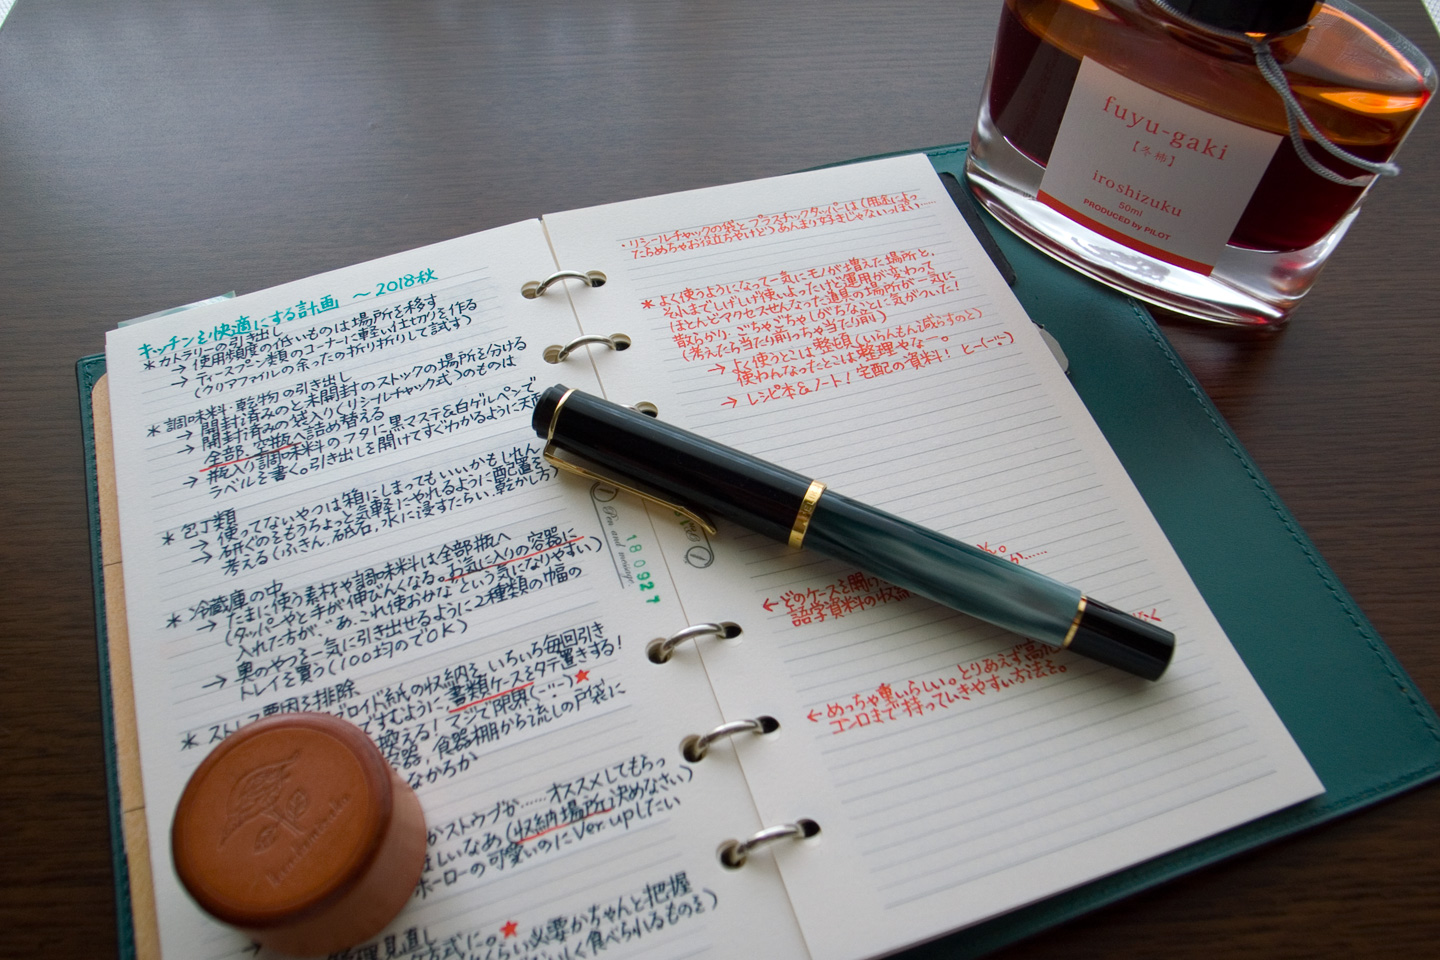 キッチンを快適にする計画 〜2018秋
*カトラリーの引き出し
→ 使用頻度の低いものは場所を移す
→ ティースプーン類のコーナーに軽い仕切りを作る
(クリアファイルの余ったの折り折りして試す)
*調味料・乾物の引き出し
→ 開封済みのと未開封のストックの場所を分ける
→ 開封済みの袋入り(リシールチャック式)のものは
全部、空瓶へ詰め替える
→ 瓶入り調味料のフタに黒マステ&白ゲルペンで
ラベルを書く。引き出しを開けてすぐわかるように
*包丁類
→ 使ってないやつは箱にしまってもいいかもしれん
→ 研ぐのをもうちょっと気軽にやれるように配置を
考える(ふきん、砥石、水に浸すたらい、乾かし方)
*冷蔵庫の中
→ たまに使う素材や調味料は全部瓶へ
(タッパーやと手が伸びんくなる。お気に入りの容器に
入れた方が、"あ、これ使おかな"という気になりやすい)
→ 奥のやつを一気に引き出せるように2種類の幅の
トレイを買う(100均のでOK)
*ストレス要因を排除
ロイド紙の収納を、いちいち毎回引き
ですむように書類ケースをタテ置きする!
換える!マジで限界(-"-)★
容器、食器棚から流しの戸袋に
なかろか
かストウブか……オススメしてもらっ
ほしいなあ(収納場所決めなさい)
ホーローの可愛いのにVer.upしたい
見直し
方式に。★
くらい必要かちゃんと把握
しく食べられるものを)
・リシールチャックの袋とプラスチックタッパーは(用途によっ
たらめちゃお役立ちやけど)あんまり好きじゃないっぽい……
*よく使うようになって一気にモノが増えた場所と、
それまでしげしげ使いよったけど運用が変わって
ほとんどアクセスせんなった道具の場所が一気に
散らかり、ごちゃごちゃしがちなことに気がついた!
(考えたら当たり前っちゃ当たり前)
→ よく使うとこは整頓(いらんもん減らすのと)
使わんなったとこは整理やなー。
→ レシピ本&ノート!宅配の資料!
Pen and message.
180927
←どのケースを開け
語学資料の収
←めっちゃ重いらしい。とりあえず高
コンロまで持っていきやすい方法を。
fuyu-gaki
【冬柿】
iroshizuku
50ml
PRODUCED by PILOT